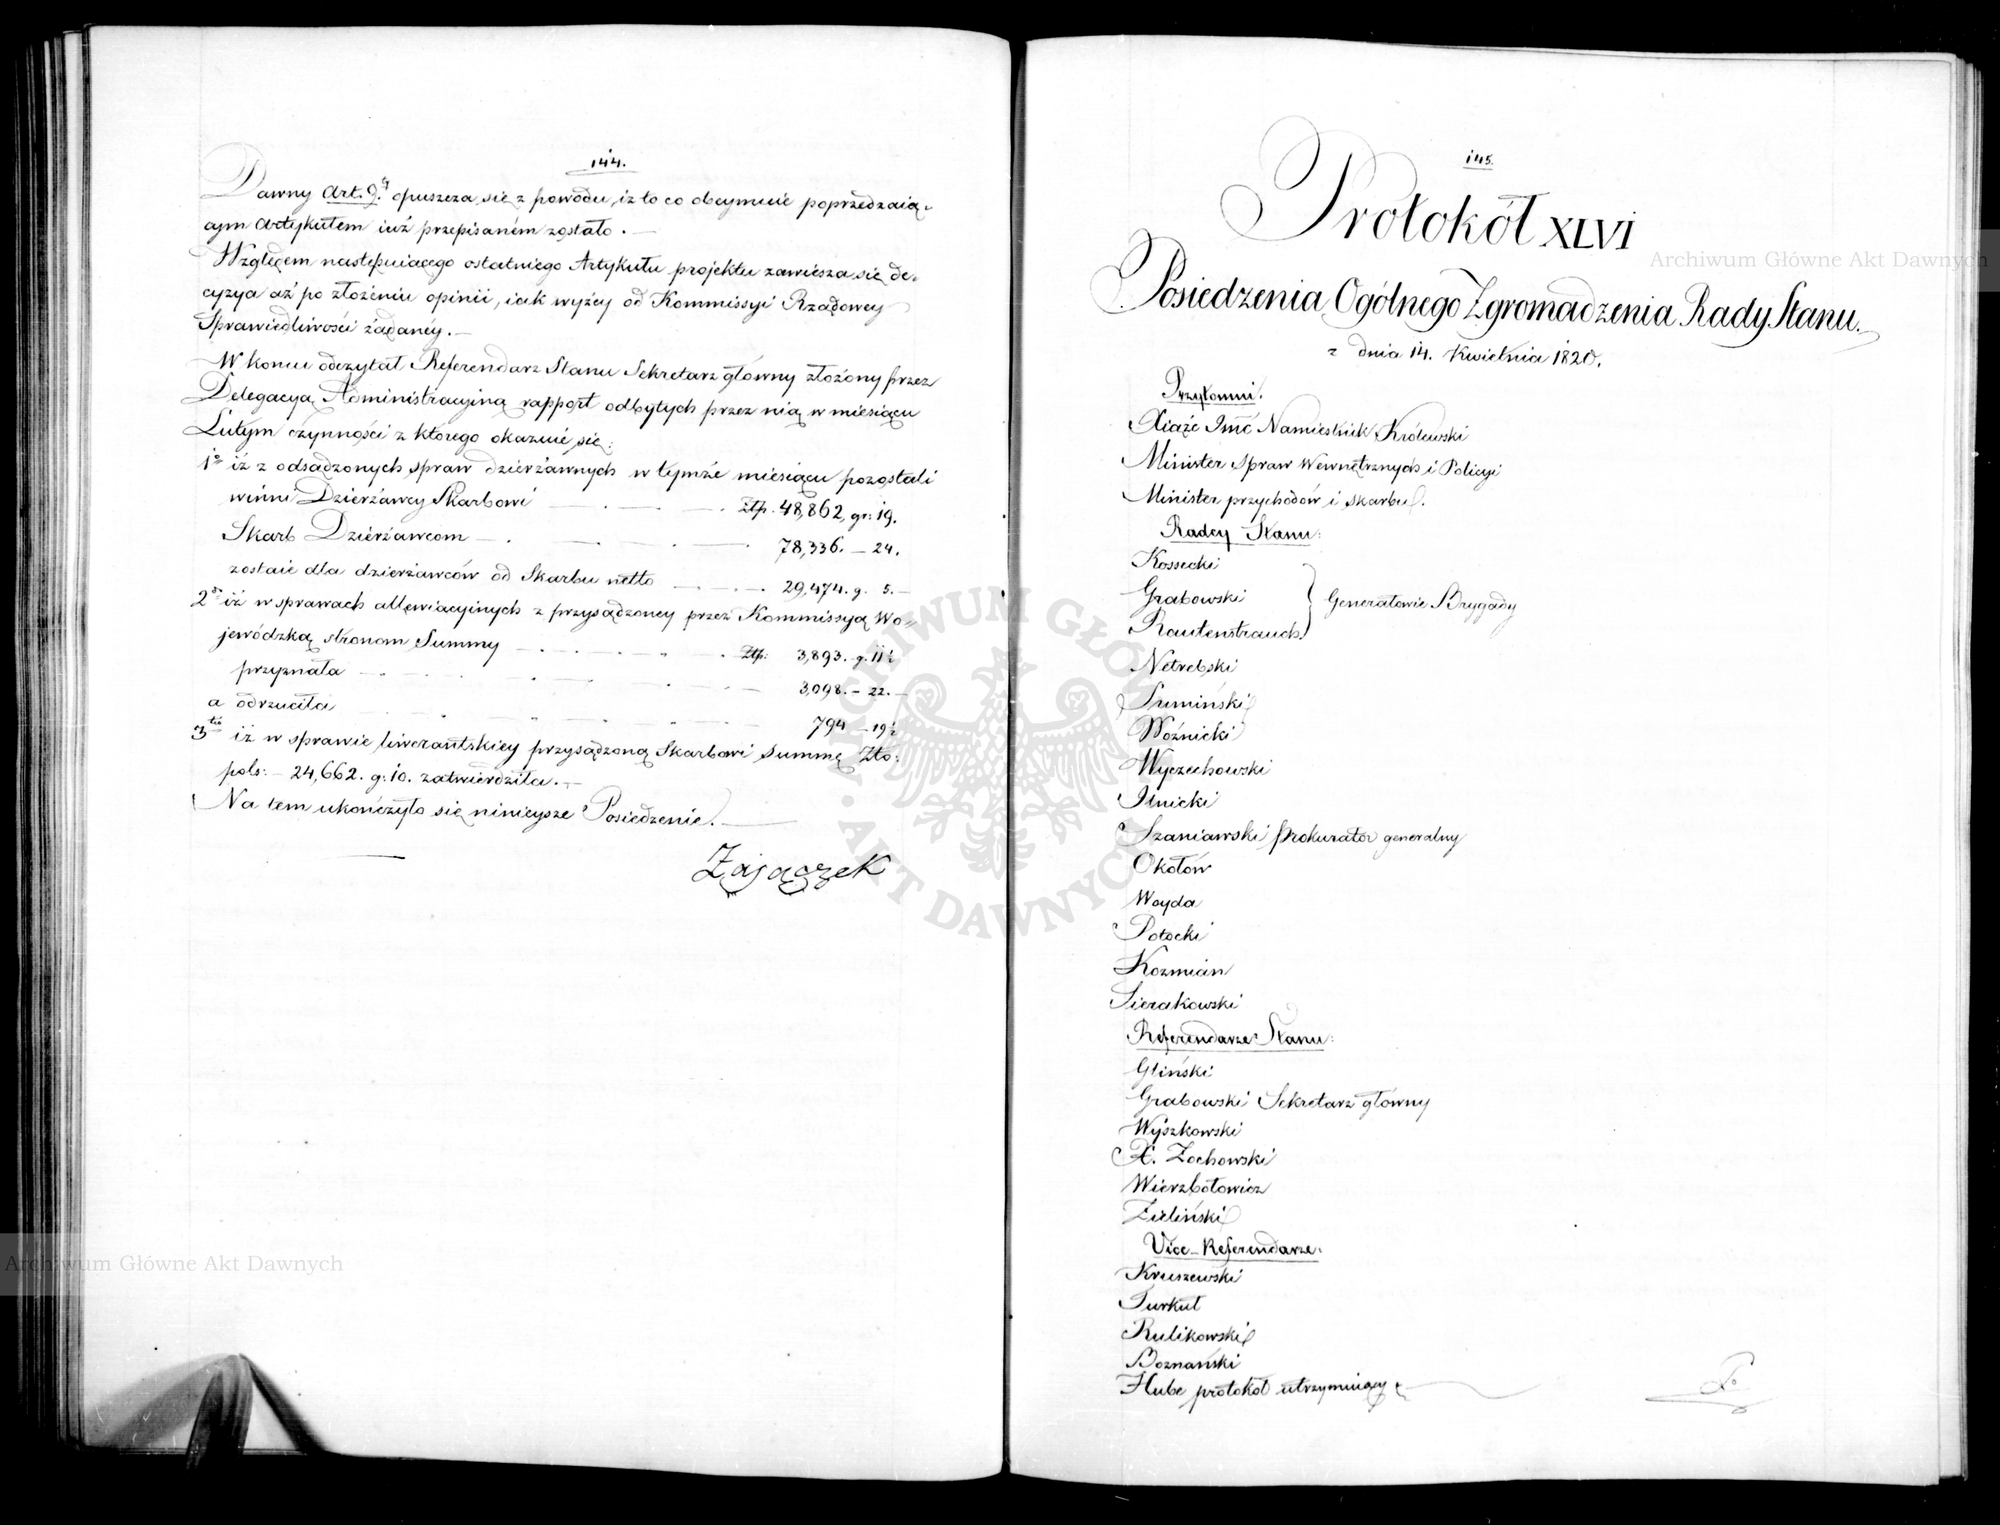 144.
Dawny Art. 9.ty opuszcza się z powodu, iż to co obeymuie poprzedzaią-
cym Artykułem iuż przepisaném zostało. —
Względem następuiącego ostatniego Artykułu projektu zawiesza się de-
cyzya aż po złożeniu opinii, iak wyżey od Kommissyi Rządowey
Sprawiedliwości żądaney. —
W końcu odczytał Referendarz Stanu Sekretarz główny złożony przez
Delegacyą Administracyiną rapport odbytych przez nią w miesiącu
Lutym czynności z którego okazuie się:
1o iż z odsądzonych spraw dzierżawnych w tymże miesiącu pozostali
winni Dzierżawcy Skarbowi — . — . — . Złp. 48,862, gr: 19.
Skarb Dzierżawcom — . — . — . — 78,336. — 24.
zostaie dla dzierżawców od Skarbu netto — . — . 29,474. g. 5. —
2o iż w sprawach allewiacyinych z przysądzoney przez Kommissyą Wo-
jewódzką stronom Summy — . — . — . Złp: 3,893. g. 11½
przyznała — . — . — . — 3,098. — 22. —
a odrzuciła — . — . — . — 794 — 19½
3tio iż w sprawie liwerantskiey przysądzoną Skarbowi Summę Zło:
pols: — 24,662. g: 10. zatwierdziła. —
Na tem ukończyło się ninieysze Posiedzenie. —
Zajączek
145.
Protokół XLVI
Posiedzenia Ogólnego Zgromadzenia Rady Stanu.
z dnia 14. Kwietnia 1820.
Przytomni:
Xiąże Jmć Namiestnik Królewski
Minister Spraw Wewnętrznych i Policyi
Minister przychodów i skarbu.
Radcy Stanu:
Kossecki
Grabowski } Generałowie Brygady
Rautenstrauch
Netrebski
Sumiński
Woźnicki
Wyczechowski
Ilnicki
Szaniawski Prokurator generalny
Okołów
Woyda
Potocki
Kozmian
Sierakowski
Referendarze Stanu:
Gliński
Grabowski Sekretarz główny
Wyszkowski
X. Zochowski
Wierzbołowicz
Zieliński
Vice-Referendarze:
Kruszewski
Turkuł
Rulikowski
Boznański
Hube protokół utrzymuiący
Archiwum Główne Akt Dawnych
Archiwum Główne Akt Dawnych
ARCHIWUM GŁÓWNE AKT DAWNYCH